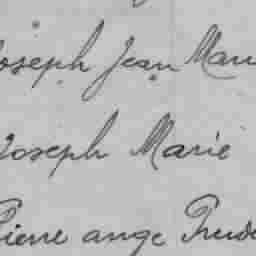 Joseph Jean Mari
Joseph Marie
Pierre ange Prude